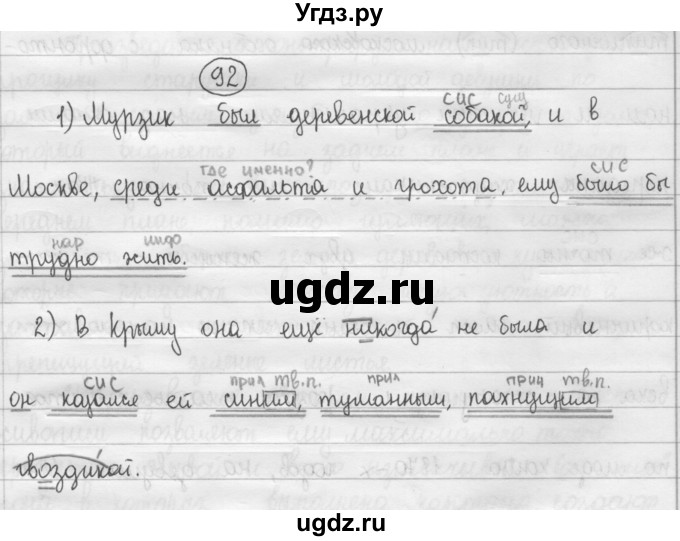 Угдз.ру
92
сис сущ
1) Мурзик был деревенской собакой, и в
где именно? сис
Москве, среди асфальта и грохота, ему было бы
нар инф
трудно жить.
ugdz.ru
2) В Крыму она ещё никогда не была и
сис прил тв.п. прил прич тв.п.
он казался ей синим, туманным, пахнущим
гвоздикой.
ugdz.ru